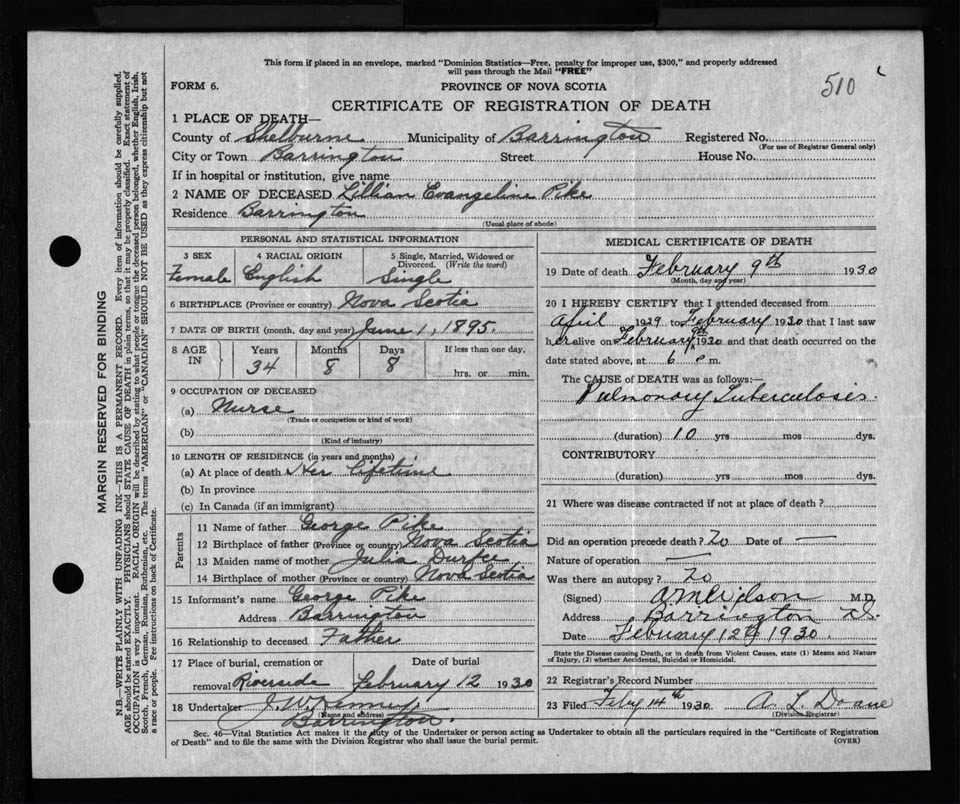 This form if placed in an envelope, marked "Dominion Statistics—Free, penalty for improper use, $300," and properly addressed
will pass through the Mail "FREE"
510
FORM 6.
PROVINCE OF NOVA SCOTIA
CERTIFICATE OF REGISTRATION OF DEATH
1 PLACE OF DEATH—
County of Shelburne Municipality of Barrington Registered No.
(For use of Registrar General only)
City or Town Barrington Street House No.
If in hospital or institution, give name
2 NAME OF DECEASED Lillian Evangeline Pike
Residence Barrington
(Usual place of abode)
PERSONAL AND STATISTICAL INFORMATION
3 SEX 4 RACIAL ORIGIN 5 Single, Married, Widowed or
Divorced. (Write the word)
Female English Single
6 BIRTHPLACE (Province or country) Nova Scotia
7 DATE OF BIRTH (month, day and year) June 1, 1895.
8 AGE IN Years Months Days If less than one day,
34 8 8 hrs. or min.
9 OCCUPATION OF DECEASED
(a) Nurse
(Trade or occupation or kind of work)
(b)
(Kind of industry)
10 LENGTH OF RESIDENCE (in years and months)
(a) At place of death Her Lifetime
(b) In province
(c) In Canada (if an immigrant)
Parents
11 Name of father George Pike
12 Birthplace of father (Province or country) Nova Scotia
13 Maiden name of mother Julia Durfee
14 Birthplace of mother (Province or country) Nova Scotia
15 Informant's name George Pike
Address Barrington
16 Relationship to deceased Father
17 Place of burial, cremation or Date of burial
removal Riverside February 12 1930
18 Undertaker J. W.
(Name and address)
Barrington.
MEDICAL CERTIFICATE OF DEATH
19 Date of death February 9th 1930
(Month, day and year)
20 I HEREBY CERTIFY that I attended deceased from
April 1929 to February 1930 that I last saw
her alive on February 9th 1930 and that death occurred on the
date stated above, at 6 P m.
The CAUSE of DEATH was as follows:—
Pulmonary Tuberculosis.
(duration) 10 yrs mos dys.
CONTRIBUTORY
(duration) yrs mos dys.
21 Where was disease contracted if not at place of death?
Did an operation precede death? No Date of —
Nature of operation —
Was there an autopsy? No
(Signed) Wilson M.D.
Address Barrington N.S.
Date February 12th 1930.
State the Disease causing Death, or in death from Violent Causes, state (1) Means and Nature
of Injury, (2) whether Accidental, Suicidal or Homicidal.
22 Registrar's Record Number
23 Filed Feby 14th 1930. A. L. Doane
(Division Registrar)
Sec. 46—Vital Statistics Act makes it the duty of the Undertaker or person acting as Undertaker to obtain all the particulars required in the "Certificate of Registration
of Death" and to file the same with the Division Registrar who shall issue the burial permit.
(OVER)
MARGIN RESERVED FOR BINDING
N.B.—WRITE PLAINLY WITH UNFADING INK—THIS IS A PERMANENT RECORD. Every item of information should be carefully supplied.
AGE should be stated EXACTLY. PHYSICIANS should STATE CAUSE OF DEATH in plain terms, so that it may be properly classified. Exact statement of
OCCUPATION is very important. RACIAL ORIGIN will be described by stating to what people or tongue the deceased person belonged, whether English, Irish,
Scotch, French, German, Russian, Ruthenian, etc. The terms "AMERICAN" or "CANADIAN" SHOULD NOT BE USED as they express citizenship but not
a race or people. Fee instructions on back of Certificate.